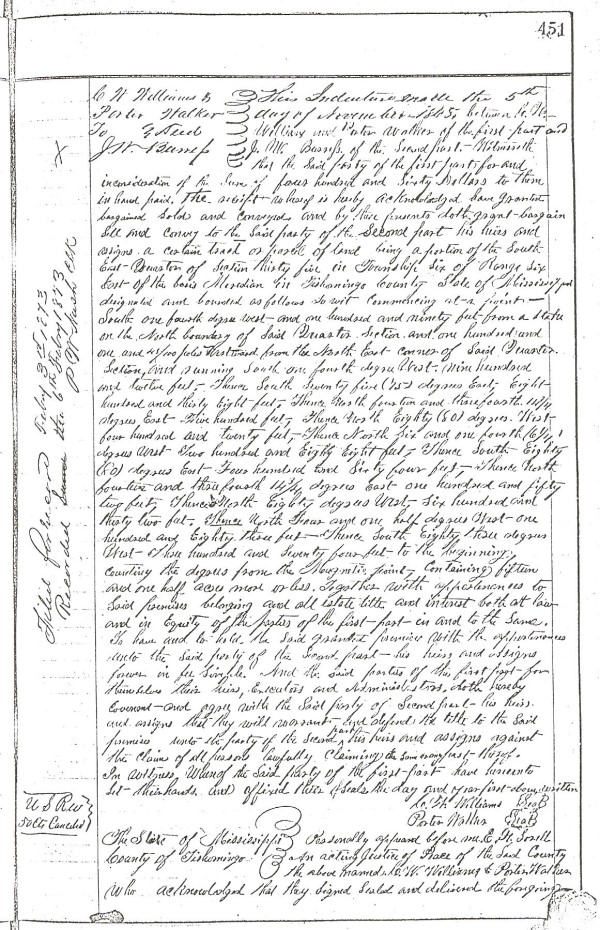 451
C W Williams &
Porter Walker
To } Deed
J. W. Burress
This Indenture made the 5th
day of November between C. W.
Williams and Porter Walker of the first part and
J. W. Burress, of the Second part. Witnesseth
that the Said party of the first part, for and
in consideration of the Sum of four hundred and Sixty Dollars to them
in hand paid, the receipt whereof is hereby acknowledged have granted
bargained Sold and conveyed and by these presents doth grant bargain
Sell and convey to the Said party of the Second part his heirs and
assigns a certain tract or parcel of land being a portion of the South
East Quarter of Section thirty five in Township Six of Range Six
East of the basis Meridian in Tishomingo County State of Mississippi and
designated and bounded as follows to wit Commencing at a point
South one fourth degree west and one hundred and ninety feet from a stake
on the North boundary of Said Quarter Section and one hundred and
one and 41/100 poles Westward from the North East corner of Said Quarter
Section, and running South one fourth degree West, nine hundred
and twelve feet, Thence South Seventy five (75) degrees East, Eight
hundred and thirty Eight feet, Thence North fourteen and three fourth 14 3/4
degrees East five hundred feet, Thence North Eighty (80) degrees West
four hundred and twenty feet, Thence North Six and one fourth (6 1/4)
degrees West Two hundred and Eighty Eight feet, Thence South Eighty
(80) degrees East Four hundred and Sixty four feet, Thence North
fourteen and three fourth 14 3/4 degrees East one hundred and fifty
two feet, Thence North Eighty degrees West, Six hundred and
thirty two feet, Thence North Four and one half degrees West one
hundred and Eighty three feet Thence South Eighty three degrees
West Three hundred and Seventy four feet to the beginning,
counting the degrees from the Magnetic point, Containing fifteen
and one half acres more or less, Together with appertenances to
Said premises belonging and all estate title and interest both at law
and in Equity of the parties of the first part in and to the Same.
To have and to hold the Said granted premises with the appertenances
unto the Said party of the Second part his heirs and assigns
forever in fee Simple. And the said parties of the first part for
themselves their heirs, Executors and Administrators, doth hereby
Covenant and agree with the Said party of Second part his heirs
and assigns that they will warrant and defend the title to the Said
premises unto the party of the Second part his heirs and assigns against
the claim of all persons lawfully Claiming the same or any part thereof.
In witness Whereof the Said party of the first part have hereunto
Set their hands and affixed their Seals the day and year first above written
C. W. Williams Seal
Porter Walker Seal
U S Rev
50 Cts Canceled
The State of Mississippi
County of Tishomingo
Personally appeared before me E. H.
An acting Justice of Peace of the Said County
the above named C. W. Williams & Porter Walker
Who acknowledged that they Signed Sealed and delivered the foregoing
Filed for record Feby 3rd 1873
Recorded the 6th Feby 1873
Clk